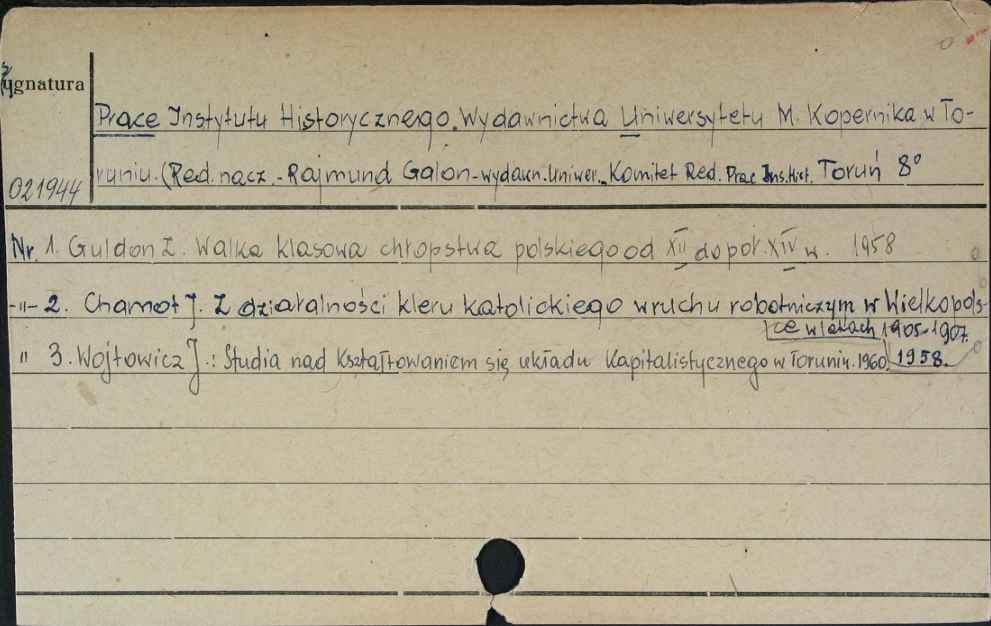 Sygnatura
Prace Instytutu Historycznego. Wydawnictwa Uniwersytetu M. Kopernika w To-
runiu. (Red. nacz. - Rajmund Galon - wydawn. Uniwer. - Komitet Red. Prac Ins. Hist. Toruń 8°
021944
Nr. 1. Guldon Z. Walka klasowa chłopstwa polskiego od XII do poł. XIV w. 1958
-"- 2. Chamot J. Z działalności kleru katolickiego w ruchu robotniczym w Wielkopols-
ce w latach 1905-1907.
1958.
" 3. Wojtowicz J.: Studia nad kształtowaniem się układu kapitalistycznego w Toruniu. 1960.